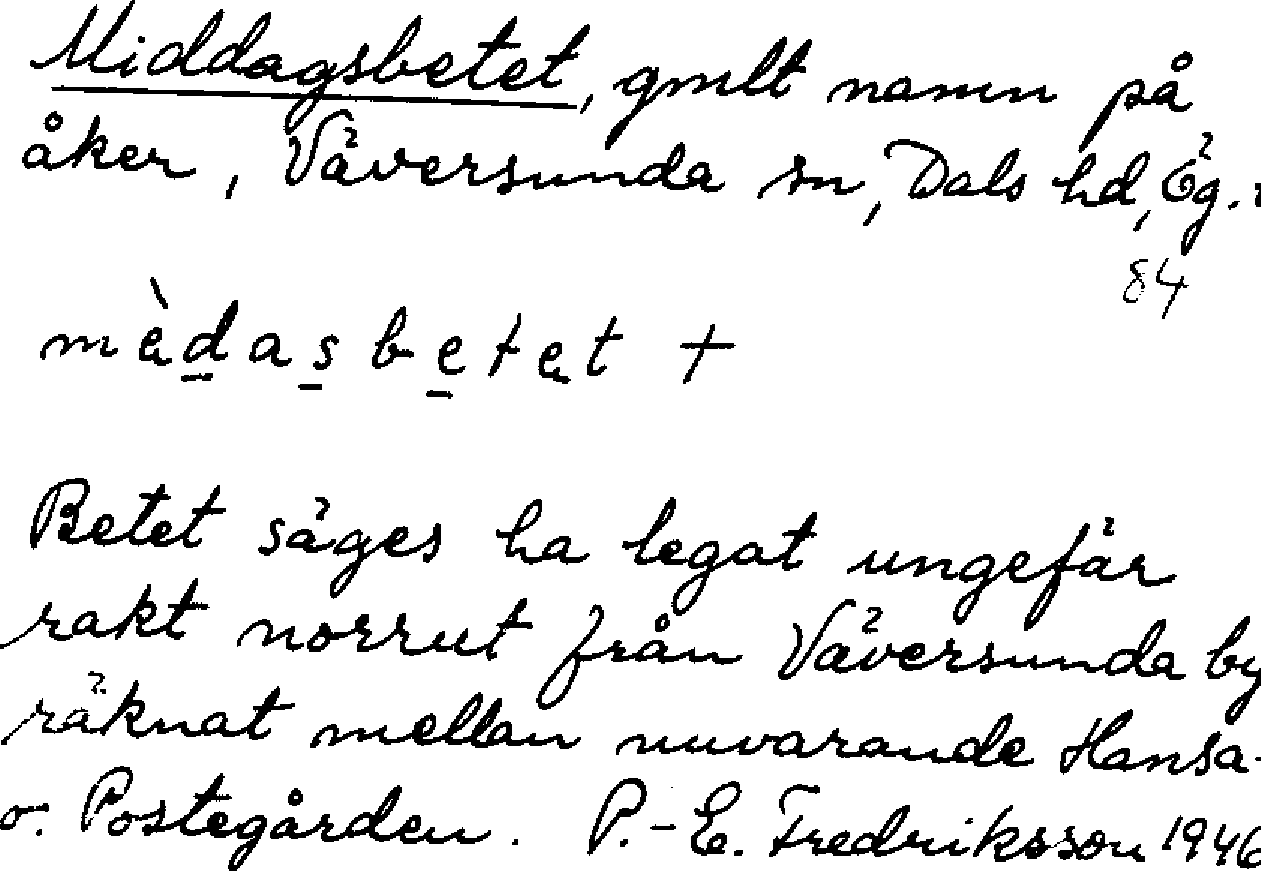 Middagsbetet, gmlt namn på
åker, Väversunda sn, Dals hd, Ög.
84
mèdasbetet +
Betet säges ha legat ungefär
rakt norrut från Väversunda by
räknat mellan nuvarande Hansa-
o. Postegården. P.-E. Fredriksson 1946